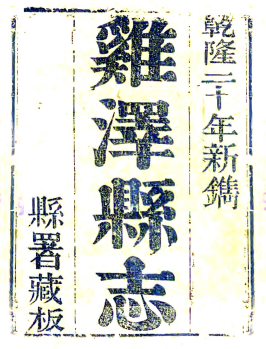 乾隆三十年新鐫
雞澤縣志
縣署藏板